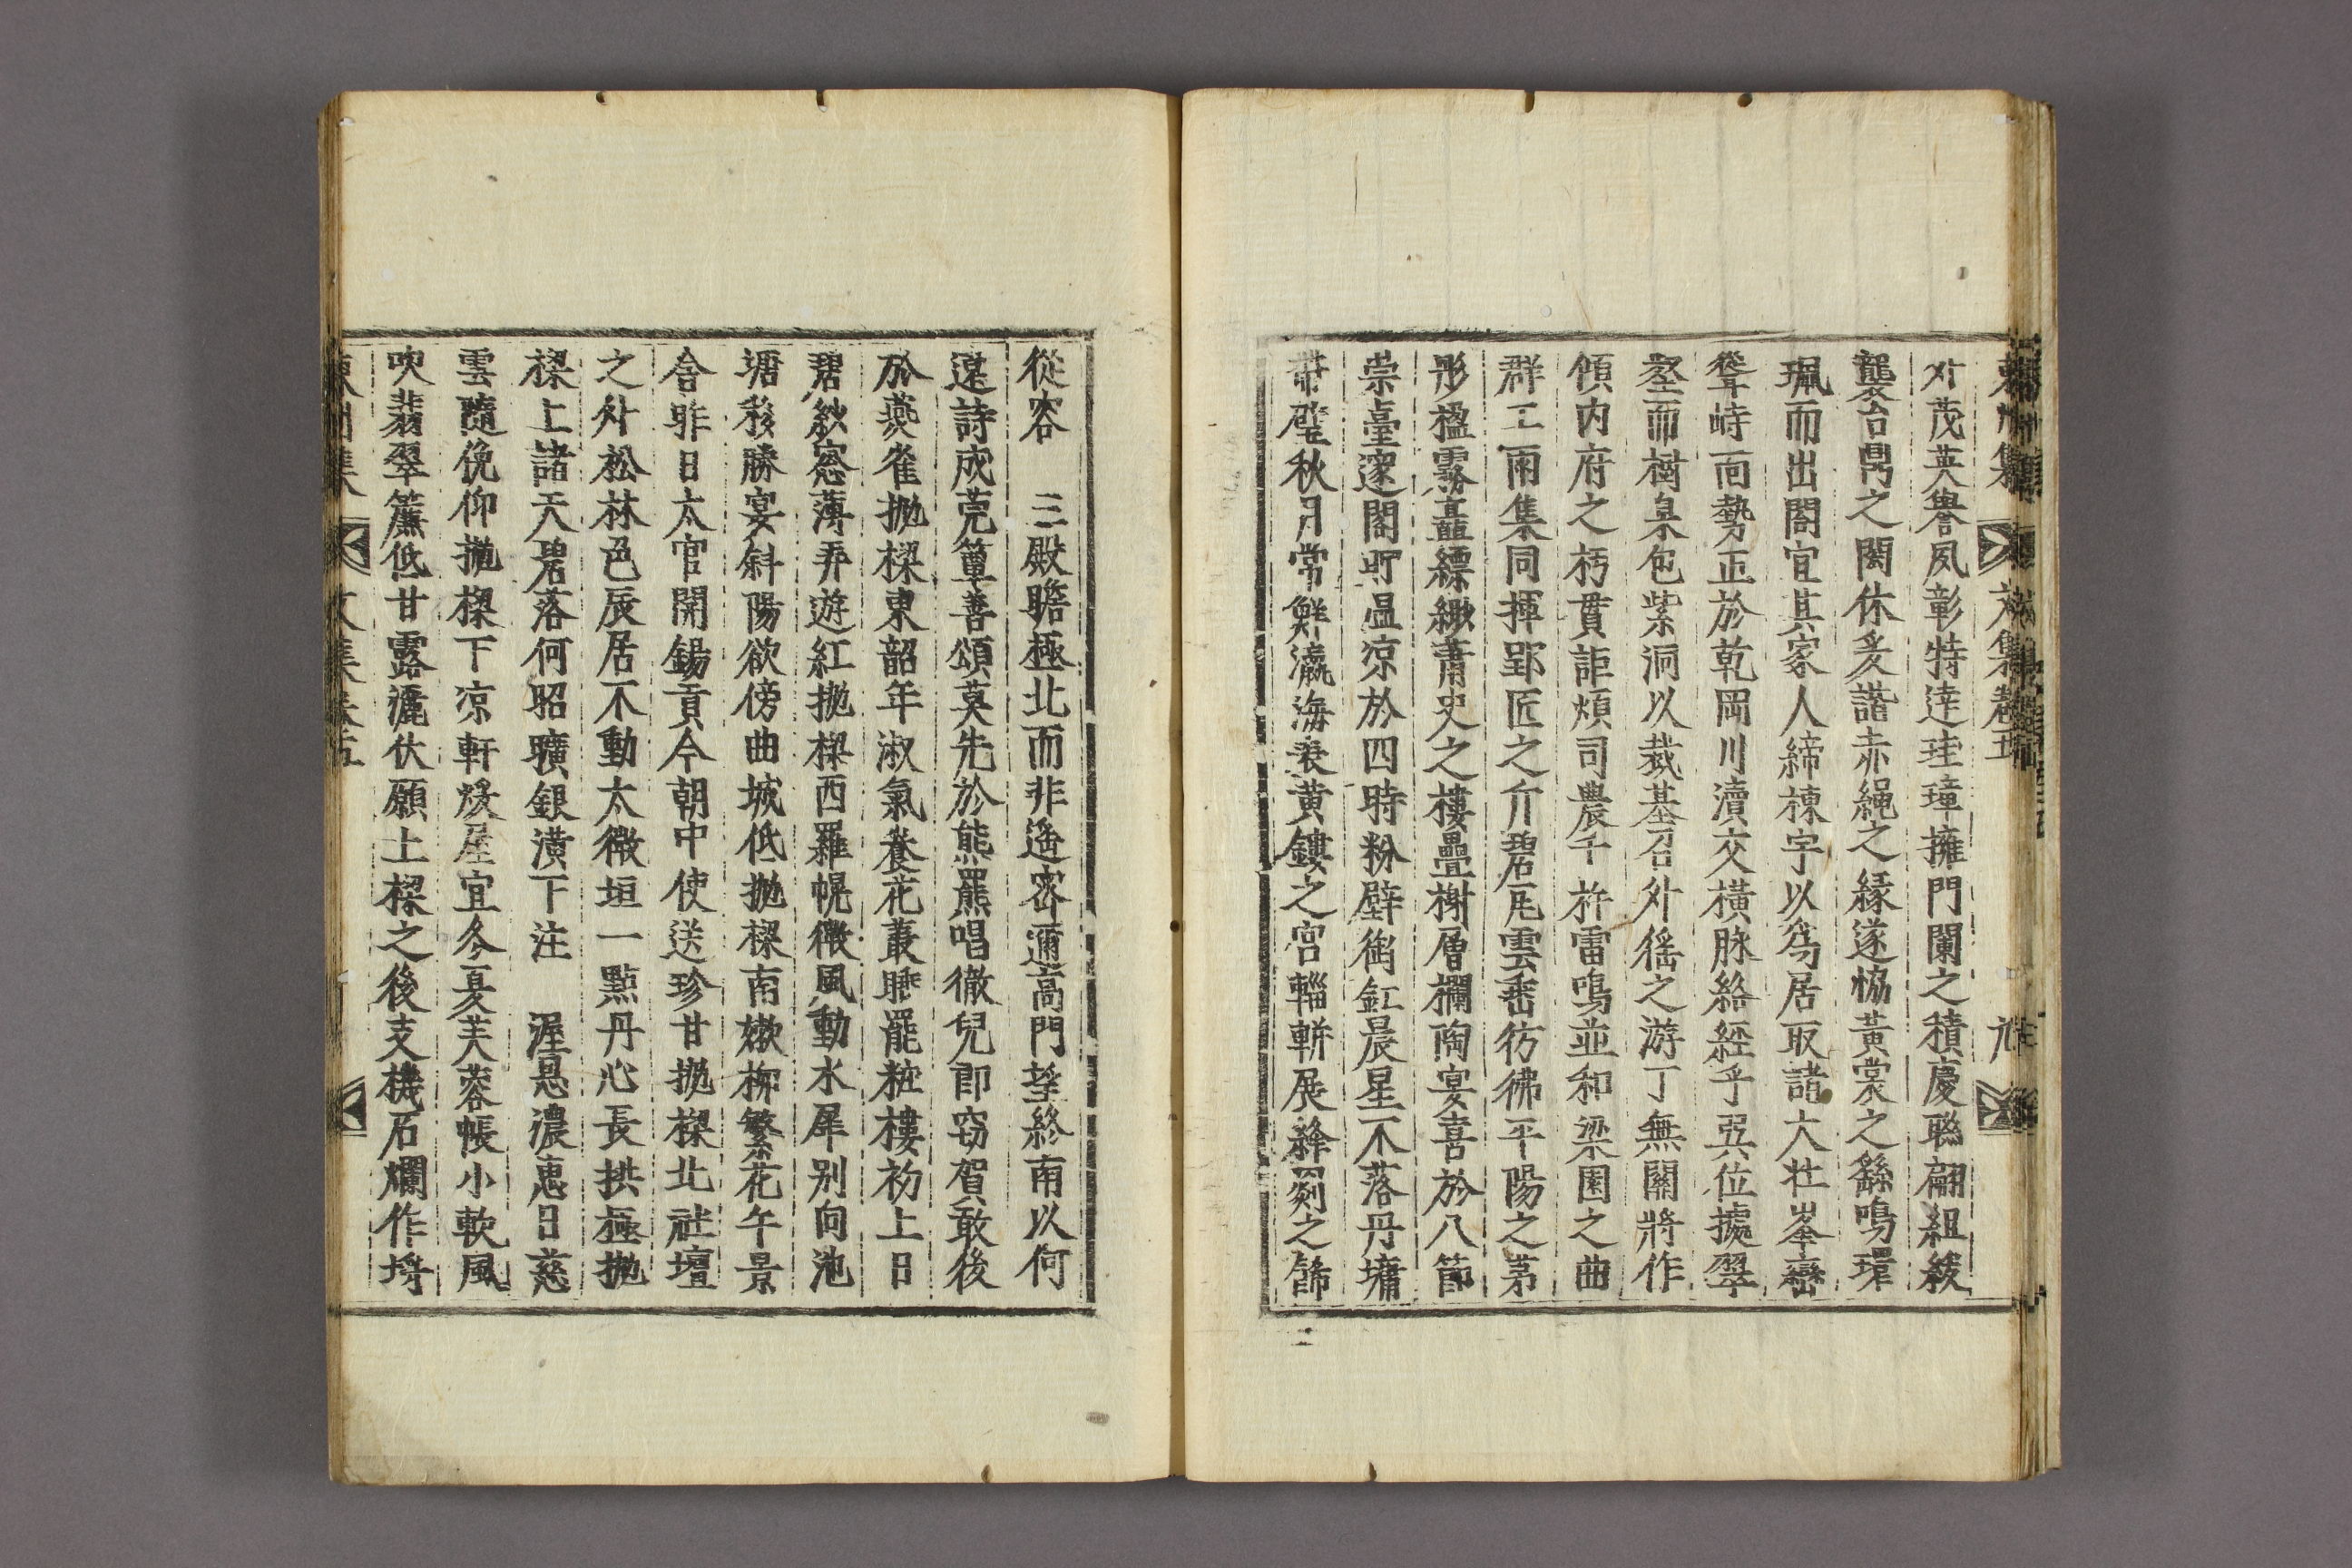 東州集 文集卷五
外茂英譽夙彰特達珪璋擁門闌之積慶聯翩組綬
襲台鼎之閎休爰諧赤繩之緣遂恊黃裳之繇鳴環
珮而出閤宜其家人締棟宇以爲居取諸大壯峯巒
聳峙面勢正於乾岡川瀆交橫脉絡經乎巽位據翠
壑而樹臬包紫洞以裁基召外徭之游丁無關將作
傾內府之朽貫詎煩司農千杵雷鳴並和梁園之曲
群工雨集同揮郢匠之斤碧瓦雲垂彷彿平陽之第
彤楹霧矗縹緲蕭史之樓疊榭層欄陶宴喜於八節
崇臺邃閣貯溫凉於四時粉壁衒釭晨星不落丹墉
帶璧秋月常鮮瀛海乘黃鏤之宮輜輧展絳罽之餙
從容　三殿瞻極北而非遙密邇高門望終南以何
遠詩成莞簟善頌莫先於熊羆唱徹兒郎窃賀敢後
於燕雀拋樑東韶年淑氣養花叢睡罷粧樓初上日
碧紗窓薄弄遊紅拋樑西羅幌微風動水犀別向池
塘移勝宴斜陽欲傍曲城低拋樑南嫩柳繁花午景
含昨日太官開錫貢今朝中使送珍甘拋樑北社壇
之外松林色辰居不動太微垣一點丹心長拱極拋
樑上諸天碧落何昭曠銀潢下注　渥恩濃惠日慈
雲隨俛仰拋樑下凉軒煖屋宜冬夏芙蓉帳小軟風
吹翡翠簾低甘露灑伏願上樑之後支機石爛作埓
東州集 文集卷五